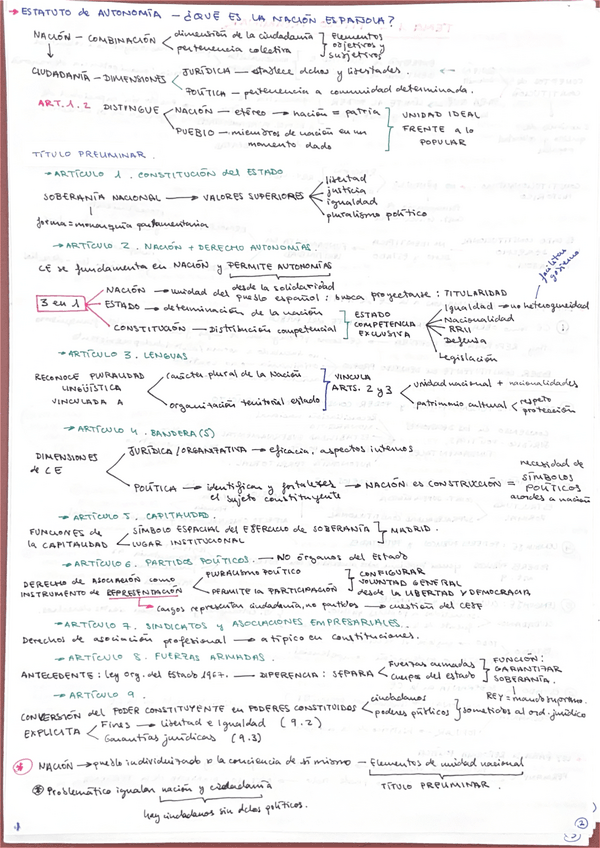 → ESTATUTO de AUTONOMÍA – ¿QUÉ ES LA NACIÓN ESPAÑOLA?
NACIÓN – COMBINACIÓN < dimensión de la ciudadanía ] Elementos
pertenencia colectiva ] objetivos y
subjetivos
CIUDADANÍA – DIMENSIONES < JURÍDICA — establece dchos y libertades.
POLÍTICA – pertenencia a comunidad determinada.
ART. 1.2 DISTINGUE < NACIÓN – etéreo → nación = patria ] UNIDAD IDEAL
PUEBLO – miembros de nación en un ] FRENTE a lo
momento dado POPULAR
TÍTULO PRELIMINAR.
→ ARTÍCULO 1. CONSTITUCIÓN del ESTADO
SOBERANÍA NACIONAL → VALORES SUPERIORES < libertad
justicia
igualdad
pluralismo político
forma = monarquía parlamentaria
→ ARTÍCULO 2. NACIÓN + DERECHO AUTONOMÍAS.
CE se fundamenta en NACIÓN y PERMITE AUTONOMÍAS
facilitar gobierno
3 en 1
NACIÓN → unidad del desde la solidaridad
pueblo español: busca proyectarse: TITULARIDAD
ESTADO → determinación de la nación
CONSTITUCIÓN — Distribución competencial ] ESTADO COMPETENCIA EXCLUSIVA
Igualdad → no heterogeneidad
Nacionalidad
RRII
Defensa
Legislación
→ ARTÍCULO 3. LENGUAS
RECONOCE PLURALIDAD LINGÜÍSTICA VINCULADA A
carácter plural de la Nación
organización territorial estado
VINCULA ARTS. 2 y 3
unidad nacional + nacionalidades
patrimonio cultural < respeto
protección
→ ARTÍCULO 4. BANDERA(S)
DIMENSIONES de CE
JURÍDICA/ORGANIZATIVA → eficacia, aspectos internos
POLÍTICA → identificar y fortalecer el sujeto constituyente → NACIÓN es CONSTRUCCIÓN = necesidad de SÍMBOLOS POLÍTICOS acordes a nación
→ ARTÍCULO 5. CAPITALIDAD.
FUNCIONES de la CAPITALIDAD < SÍMBOLO ESPACIAL del EJERCICIO de SOBERANÍA ] MADRID.
LUGAR INSTITUCIONAL
→ ARTÍCULO 6. PARTIDOS POLÍTICOS. — NO órganos del Estado
DERECHO de ASOCIACIÓN como INSTRUMENTO de REPRESENTACIÓN
PLURALISMO POLÍTICO
PERMITE la PARTICIPACIÓN
CONFIGURAR VOLUNTAD GENERAL desde la LIBERTAD Y DEMOCRACIA
cargos representan ciudadanía, no partidos → cuestión del
→ ARTÍCULO 7. SINDICATOS y ASOCIACIONES EMPRESARIALES.
Derechos de asociación profesional → atípico en constituciones.
→ ARTÍCULO 8. FUERZAS ARMADAS.
ANTECEDENTE: ley org. del Estado 1967. — DIFERENCIA: SEPARA < Fuerzas armadas
cuerpos del estado ] FUNCIÓN: GARANTIZAR SOBERANÍA.
REY = mando supremo.
→ ARTÍCULO 9.
CONVERSIÓN del PODER CONSTITUYENTE en PODERES CONSTITUIDOS < ciudadanos
poderes públicos } sometidos al ord. jurídico
EXPLICITA < Fines → libertad e Igualdad (9.2)
Garantías jurídicas (9.3)
* NACIÓN → pueblo individualizado x la conciencia de sí mismo – Elementos de unidad nacional
TÍTULO PRELIMINAR.
* Problemático igualar nación y ciudadanía
hay ciudadanos sin dchos políticos.
2